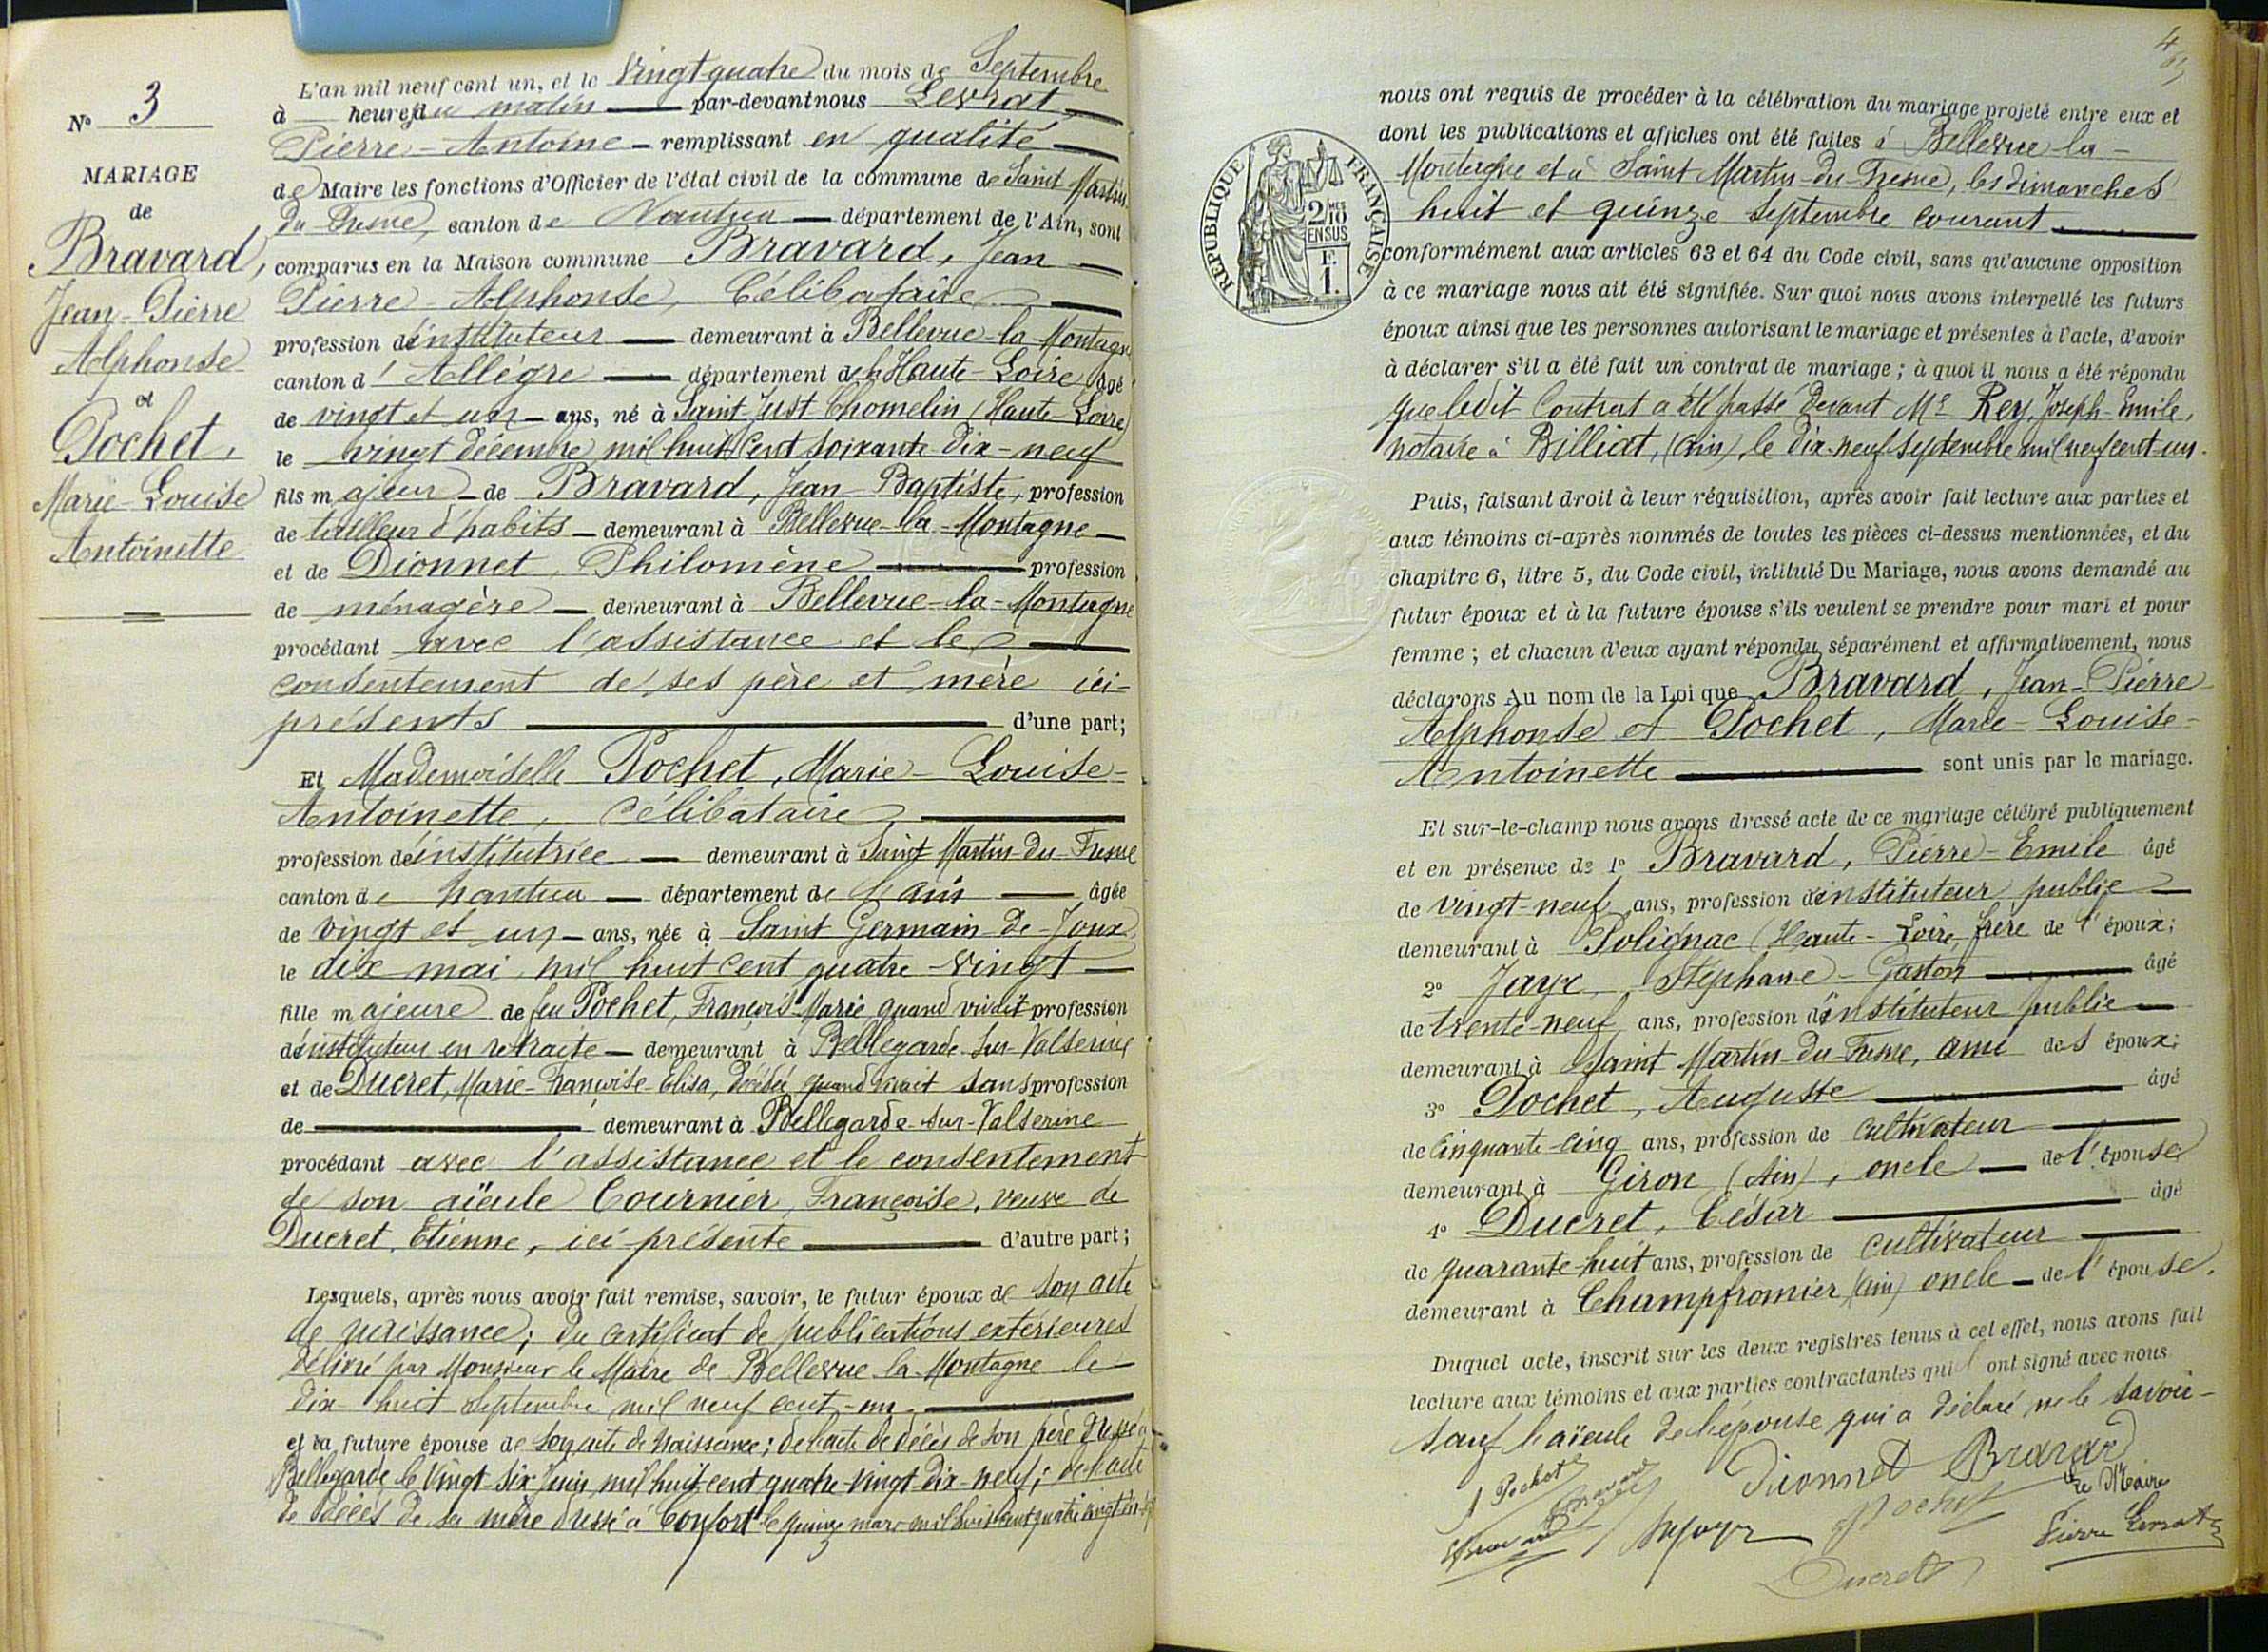 N° 3
MARIAGE
de
Bravard,
Jean-Pierre
Alphonse
et
Pochet,
Marie-Louise
Antoinette
L'an mil neuf cent un, et le vingt-quatre du mois de Septembre
à heures du matin par-devant nous Levrat
Pierre-Antoine remplissant en qualité
de Maire les fonctions d'Officier de l'état civil de la commune de Saint Martin
du Fresne, canton de Nantua département de l'Ain, sont
comparus en la Maison commune Bravard, Jean
Pierre Alphonse, Célibataire
profession d'instituteur demeurant à Bellevue-la-Montagne
canton d'Allègre département de la Haute-Loire âgé
de vingt et un ans, né à Saint Just Chomelin (Haute-Loire)
le vingt décembre mil huit cent soixante dix-neuf
fils majeur de Bravard, Jean-Baptiste, profession
de tailleur d'habits demeurant à Bellevue-la-Montagne
et de Dionnet, Philomène profession
de ménagère demeurant à Bellevue-la-Montagne
procédant avec l'assistance et le
consentement de ses père et mère ici-
présents d'une part;
Et Mademoiselle Pochet, Marie-Louise-
Antoinette, célibataire
profession d'institutrice demeurant à Saint Martin-du-Fresne
canton de Nantua département de l'Ain âgée
de vingt et un ans, née à Saint Germain-de-Joux
le dix mai mil huit cent quatre-vingt
fille majeure de feu Pochet, François-Marie quand vivait profession
d'instituteur en retraite demeurant à Bellegarde-sur-Valserine
et de Ducret, Marie-Françoise-Elisa, décédée quand vivait sans profession
de demeurant à Bellegarde-sur-Valserine
procédant avec l'assistance et le consentement
de son aïeule Tournier, Françoise, veuve de
Ducret, Etienne, ici présente d'autre part;
Lesquels, après nous avoir fait remise, savoir, le futur époux de son acte
de naissance; du certificat de publications extérieures
délivré par Monsieur le Maire de Bellevue-la-Montagne le
dix-huit Septembre mil neuf cent-un.
et la future épouse de son acte de naissance; de l'acte de décès de son père dressé à
Bellegarde le vingt-six Juin mil huit cent quatre-vingt-dix-neuf; de l'acte
de décès de sa mère dressé à Confort le quinze mars mil huit cent quatre vingt
4
nous ont requis de procéder à la célébration du mariage projeté entre eux et
dont les publications et affiches ont été faites à Bellevue-la-
Montagne et à Saint Martin-du-Fresne, les dimanches
huit et quinze Septembre courant
RÉPUBLIQUE FRANÇAISE
2/10 MES
EN SUS
F.
1.
conformément aux articles 63 et 64 du Code civil, sans qu'aucune opposition
à ce mariage nous ait été signifiée. Sur quoi nous avons interpellé les futurs
époux ainsi que les personnes autorisant le mariage et présentes à l'acte, d'avoir
à déclarer s'il a été fait un contrat de mariage; à quoi il nous a été répondu
que ledit Contrat a été passé devant Me Rey, Joseph-Emile,
notaire à Billiat, (Ain), le dix-neuf septembre mil neuf cent-un.
Puis, faisant droit à leur réquisition, après avoir fait lecture aux parties et
aux témoins ci-après nommés de toutes les pièces ci-dessus mentionnées, et du
chapitre 6, titre 5, du Code civil, intitulé Du Mariage, nous avons demandé au
futur époux et à la future épouse s'ils veulent se prendre pour mari et pour
femme; et chacun d'eux ayant répondu séparément et affirmativement, nous
déclarons Au nom de la Loi que Bravard, Jean-Pierre-
Alphonse et Pochet, Marie-Louise-
Antoinette sont unis par le mariage.
Et sur-le-champ nous avons dressé acte de ce mariage célébré publiquement
et en présence de 1° Bravard, Pierre-Emile âgé
de vingt-neuf ans, profession d'instituteur public
demeurant à Polignac (Haute-Loire, frère de l'époux;
2° Jaye, Stéphane-Gaston âgé
de trente-neuf ans, profession d'instituteur public
demeurant à Saint Martin-du-Fresne, ami des époux;
3° Pochet, Auguste âgé
de cinquante-cinq ans, profession de cultivateur
demeurant à Giron (Ain), oncle de l'épouse
4° Ducret, César âgé
de quarante-huit ans, profession de cultivateur
demeurant à Champfromier (Ain) oncle de l'épouse.
Duquel acte, inscrit sur les deux registres tenus à cet effet, nous avons fait
lecture aux témoins et aux parties contractantes qui ont signé avec nous
sauf l'aïeule de l'épouse qui a déclaré ne le savoir
Pochet Bravard Dionnet Bravard
Bravard Pochet Le Maire
Ducret Pierre Levrat